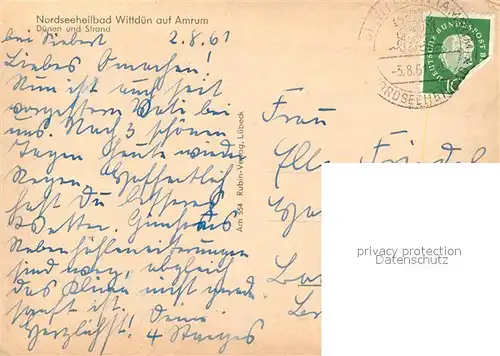 Nordseeheilbad Wittdün auf Amrum
Dünen und Strand
bei Siebert 2.8.61
Liebes Omachen!
Nun ist auch seit
vorgestern Vati bei
uns. Nach 3 schönen
Tagen heute wieder
Regen. Hoffentlich
hast Du besseres
Wetter. Günthers
Nebenhöhleneiterungen
sind weg, obgleich
das Klima nicht gerade
sanft ist.
Herzlichst! Deine
4
Am 554 Rubin-Verlag, Lübeck
-3.8.6
NORDSEEHE
DEUTSCHE BUNDESPOST
10
Frau
privacy protection
Datenschutz